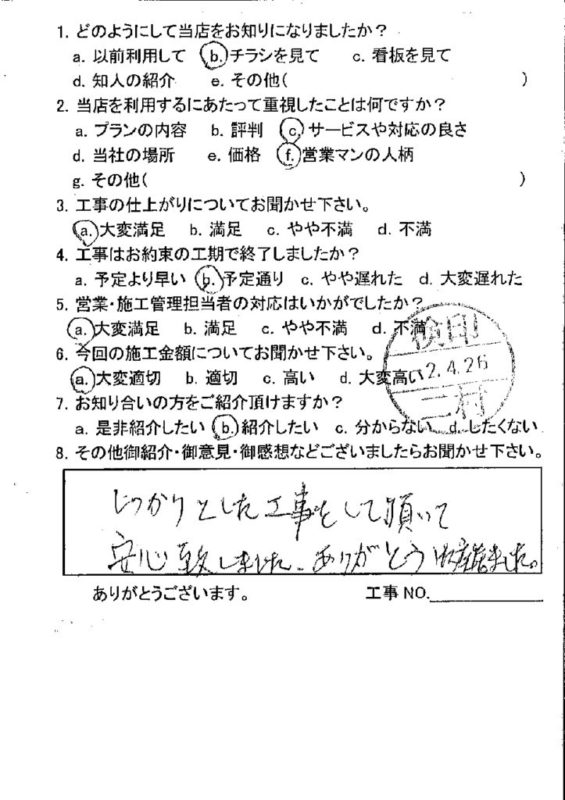 1. どのようにして当店をお知りになりましたか？
a. 以前利用して b. チラシを見て c. 看板を見て
d. 知人の紹介 e. その他( )
2. 当店を利用するにあたって重視したことは何ですか？
a. プランの内容 b. 評判 c. サービスや対応の良さ
d. 当社の場所 e. 価格 f. 営業マンの人柄
g. その他( )
3. 工事の仕上がりについてお聞かせ下さい。
a. 大変満足 b. 満足 c. やや不満 d. 不満
4. 工事はお約束の工期で終了しましたか？
a. 予定より早い b. 予定通り c. やや遅れた d. 大変遅れた
5. 営業・施工管理担当者の対応はいかがでしたか？
a. 大変満足 b. 満足 c. やや不満 d. 不満
検印
6. 今回の施工金額についてお聞かせ下さい。
a. 大変適切 b. 適切 c. 高い d. 大変高い
2.4.26
二村
7. お知り合いの方をご紹介頂けますか？
a. 是非紹介したい b. 紹介したい c. 分からない d. したくない
8. その他御紹介・御意見・御感想などございましたらお聞かせ下さい。
しっかりとした工事をして頂いて
安心致しました。ありがとう御座居ました。
ありがとうございます。 工事 NO.